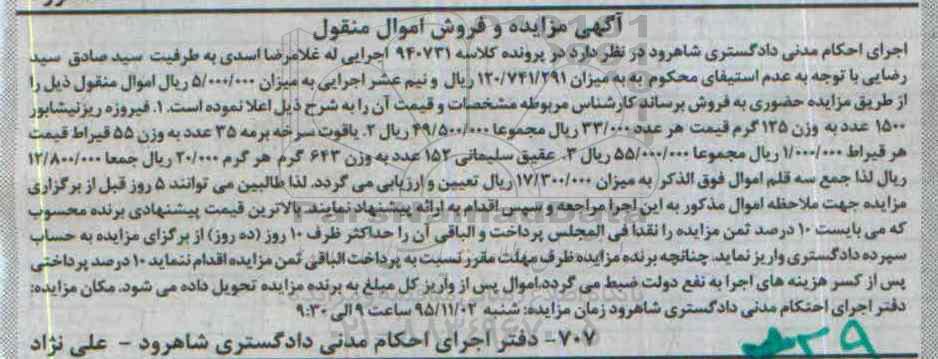 آگهی مزایده و فروش اموال منقول
اجرای احکام مدنی دادگستری شاهرود در نظر دارد در پرونده کلاسه ۹۴۰۷۳۱ اجرایی له غلامرضا اسدی به طرفیت سید صادق سید
رضایی با توجه به عدم استیفای محکوم به به میزان ۱۲۰/۷۴۱/۲۹۱ ریال و نیم عشر اجرایی به میزان ۵/۰۰۰/۰۰۰ ریال اموال منقول ذیل را
از طریق مزایده حضوری به فروش برساند کارشناس مربوطه مشخصات و قیمت آن را به شرح ذیل اعلا نموده است. ۱. فیروزه ریزنیشابور
۱۵۰۰ عدد به وزن ۱۲۵ گرم قیمت هر عدد ۳۳/۰۰۰ ریال مجموعا ۴۹/۵۰۰/۰۰۰ ریال ۲. یاقوت سرخه برمه ۳۵ عدد به وزن ۵۵ قیراط قیمت
هر قیراط ۱/۰۰۰/۰۰۰ ریال مجموعا ۵۵/۰۰۰/۰۰۰ ریال ۳. عقیق سلیمانی ۱۵۲ عدد به وزن ۶۴۳ گرم هر گرم ۲۰/۰۰۰ ریال جمعا ۱۲/۸۰۰/۰۰۰
ریال لذا جمع سه قلم اموال فوق الذکر به میزان ۱۷/۳۰۰/۰۰۰ ریال تعیین و ارزیابی می گردد. لذا طالبین می توانند ۵ روز قبل از برگزاری
مزایده جهت ملاحظه اموال مذکور به این اجرا مراجعه و سپس اقدام به ارائه پیشنهاد نمایند. بالاترین قیمت پیشنهادی برنده محسوب
که می بایست ۱۰ درصد ثمن مزایده را نقدا فی المجلس پرداخت و الباقی آن را حداکثر ظرف ۱۰ روز (ده روز) از برگزای مزایده به حساب
سپرده دادگستری واریز نماید. چنانچه برنده مزایده ظرف مهلت مقرر نسبت به پرداخت الباقی ثمن مزایده اقدام ننماید ۱۰ درصد پرداختی
پس از کسر هزینه های اجرا به نفع دولت ضبط می گردد.اموال پس از واریز کل مبلغ به برنده مزایده تحویل داده می شود. مکان مزایده:
دفتر اجرای احکام مدنی دادگستری شاهرود زمان مزایده: شنبه ۹۵/۱۱/۰۲ ساعت ۹ الی ۹:۳۰
۷۰۷- دفتر اجرای احکام مدنی دادگستری شاهرود - علی نژاد
ParsNamadData